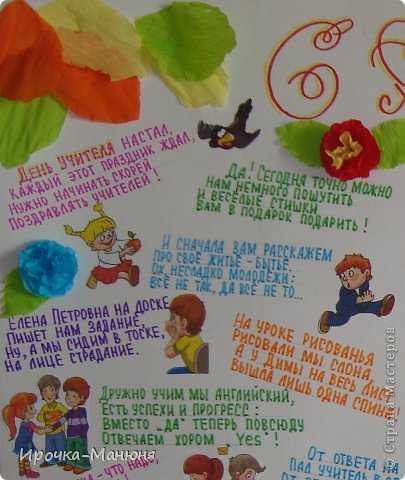 С
День учителя настал,
Каждый этот праздник ждал,
Нужно начинать скорей
Поздравлять учителей!
Да! Сегодня точно можно
Нам немного пошутить
И весёлые стишки
Вам в подарок подарить!
И сначала вам расскажем
Про своё житьё-бытьё...
Ох, несладко молодёжи:
Всё не так, да всё не то...
Елена Петровна на доске
Пишет нам задание,
Ну, а мы сидим в тоске,
На лице страдание.
На уроке рисованья
Рисовали мы слона,
А у Димы на весь лист
Вышла лишь одна спина
Дружно учим мы английский,
Есть успехи и прогресс:
Вместо „да" теперь повсюду
Отвечаем хором „Yes"!
От ответа на
Пал учитель в о
- что надо,
Ирочка-Манюня
© Страна Мастеров